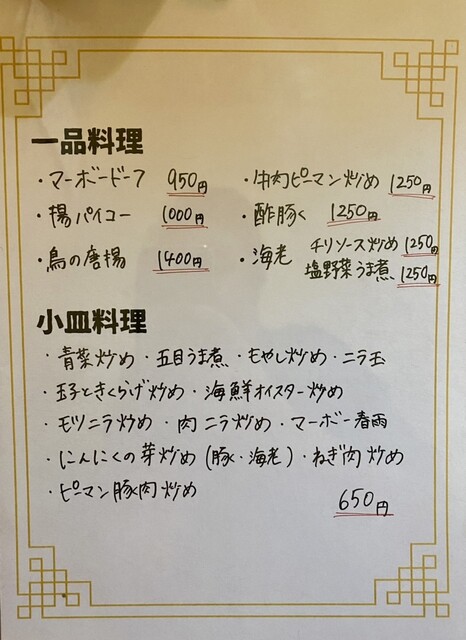 一品料理
・マーボードーフ 950円
・牛肉ピーマン炒め 1250円
・揚パイコー 1000円
・酢豚く 1250円
・鳥の唐揚 1400円
・海老 チリソース炒め 1250円
塩野菜うま煮 1250円
小皿料理
・青菜炒め・五目うま煮・もやし炒め・ニラ玉
・玉子ときくらげ炒め・海鮮オイスター炒め
・モツニラ炒め・肉ニラ炒め・マーボー春雨
・にんにくの芽炒め(豚・海老)・ねぎ肉炒め
・ピーマン豚肉炒め
650円